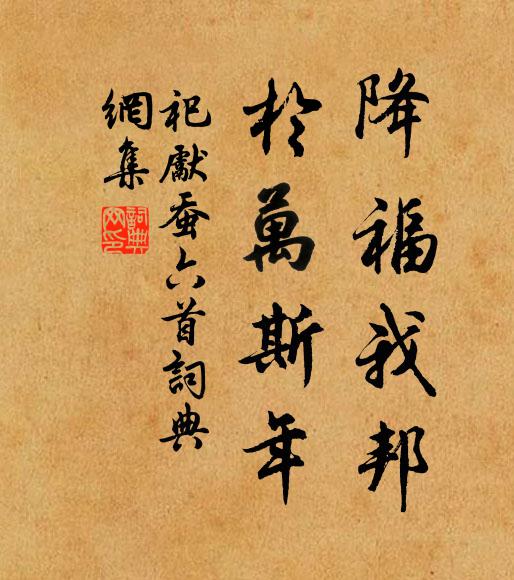 降福我邦
於萬斯年
祀獻蚕六首詞典
網集
詞典
网印